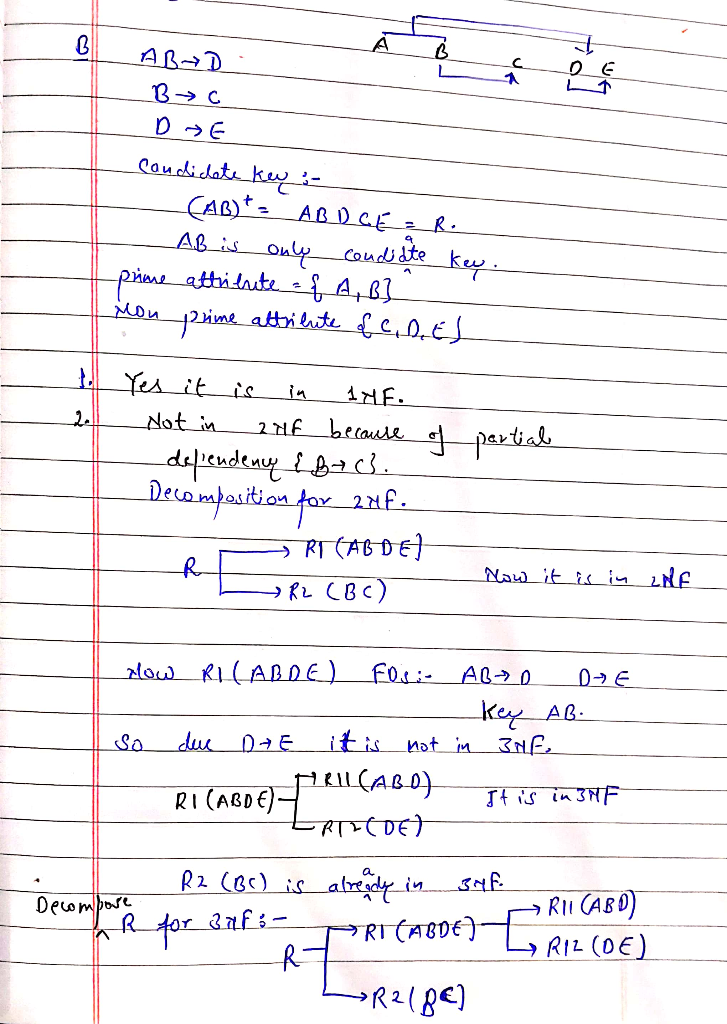 A B C D E
B AB→D
B→C
D→E
Candidate key :-
(AB)⁺ = ABDCE = R.
AB is only candidate key.
prime attribute = {A, B}
Non prime attribute {C, D, E}
1. Yes it is in 1NF.
2. Not in 2NF because of partial
dependency {B→C}.
Decomposition for 2NF.
R → R1 (ABDE)
→ R2 (BC)
Now it is in 2NF
Now R1(ABDE) FDs:- AB→D D→E
Key AB.
So due D→E it is not in 3NF,
R1(ABDE) → R11(ABD)
R12(DE)
It is in 3NF
R2 (BC) is already in 3NF.
Decompose R for 3NF :-
R → R1(ABDE) → R11(ABD)
→ R12(DE)
→ R2(BC)